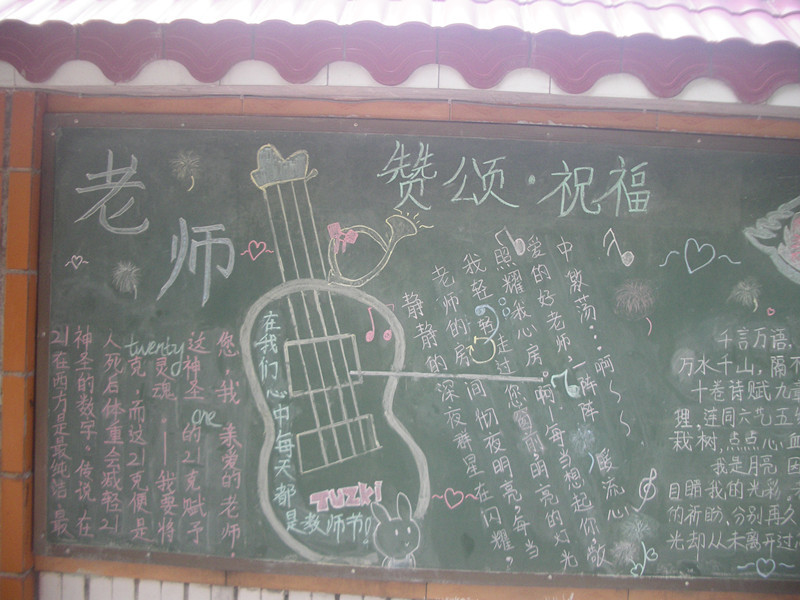 老师
赞颂·祝福
21在西方是最纯洁、最
神圣的数字。传说，在
人死后体重会减轻21
克，而这21克便是
灵魂。——我要将
这神圣的21克赋予
您，我亲爱的老师.
twenty
one
在我们心中每天都
是教师节！
TUZKI
静静的深夜群星在闪耀，
老师的房间彻夜明亮。每当
我轻轻走过您窗前，明亮的灯光
照耀我心房。啊~每当想起你，敬
爱的好老师，一阵阵暖流心
中激荡…啊~~
千言万语，
万水千山，隔不
十卷诗赋九章
理，连同六艺五经
栽树，点点心血
我是月亮 因
目睹我的光彩
的祈盼，分别再久
光却从未离开过